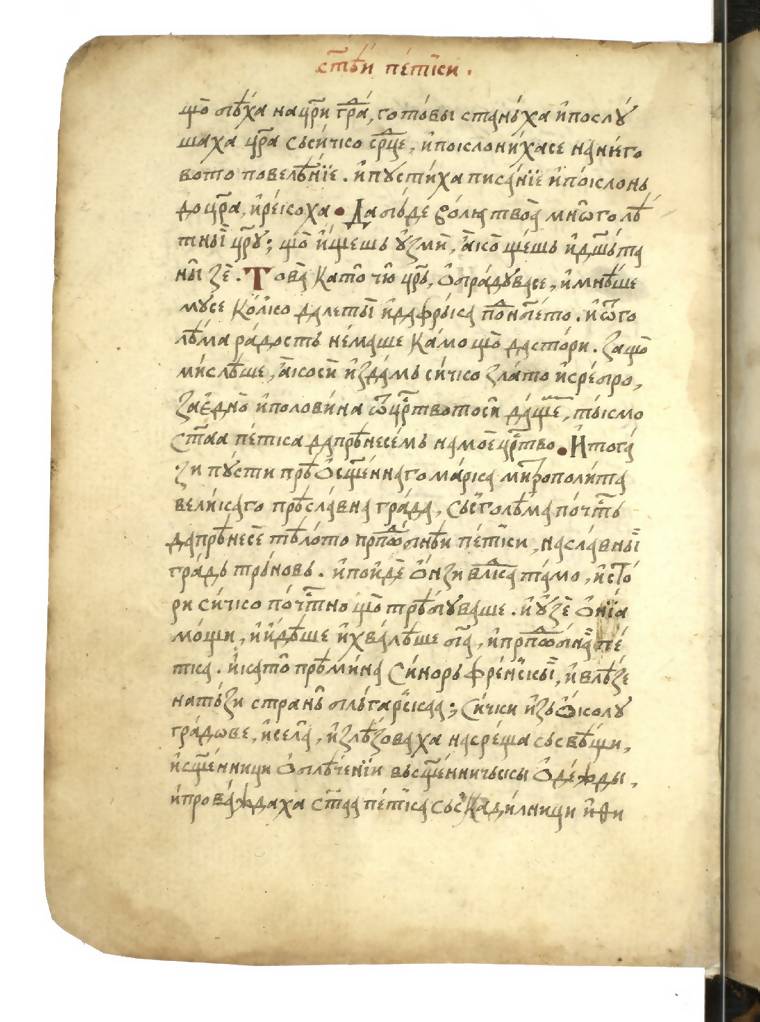 ст҃ѣи пе́тки.
що̀ бѣ́ха на цр҃и гра́, гото́вы стань́ха и҆ послу́
шаха цр҃а със и́чко ср҃це, и҆ поклони́хасе на нѣго
вото повелѣ́нїе. и҆ пусти́ха писа́нїе и҆ покло́нь
до цр҃а, и҆ ре́коха • Да бь́де во́лꙗ твоа̀ мно́го лѣ́
тны̀й цр҃у; що̀ и҆́щешь у҆змѝ, а҆ко̀ ще́шь и҆ дш҃ѣта
ны̀ зѐ. Това̀ като̀ чю̀ цр҃ь, ѻ҆бра́дувасе, и҆ мнѣ́ше
мусе ко́лко да летьі̀ и҆ да фрь́ка по не́бето. и҆ ѿ го
лѣ́ма ра́дость не́маше ка́мо що̀ да сто́ри. защо̀
ми́слѣше, а҆ко сѝ и҆зда́мь си́чко зла́то и҆ сре́бро,
за є҆дно̀ и҆ полови́на ѿ цр҃твото сѝ да́ще, тьі́кмо
ст҃аа пе́тка да прѣнесе́мь на моѐ цр҃тво • И҆ тога́
зи пу́сти прѣѻ҆сщ҃е́ннаго ма́рка митрополи́та
вели́каго прѣсла́вна гра́да, със голѣ́ма по́чть
да прѣнесѐ тѣ́лото прпⷣо́бнѣи пе́тки, на сла́вньі̀
гра́дь трь́новь. и҆ по́йде ѻ҆́нзи влⷣка та́мо, и҆ сто́
ри си́чко по́чтно що̀ трѣ́буваше. и҆ у҆зѐ ѻ҆нїа
мо́щи, и҆ и҆́дѣше и҆ хва́лѣше бг҃а, и҆ прпⷣо́бнаа пе́
тка. и҆ като̀ прѣми́на си́норь фре́нскьі̀, и҆ влѣ́зе
на ть́зи страна̀ бльга́рскаа; си́чки и҆зь ѻ҆́колу
гра́дове, и҆ се́ла, и҆злѣ́зоваха на сре́ща със свѣ́щи,
и҆ сщ҃е́нници ѻ҆блѣче́ни вь сщ҃е́нничьскы ѻ҆де́жды,
и҆ прова́ждаха ст҃аа пе́тка със кади́лници и҆ ѳи